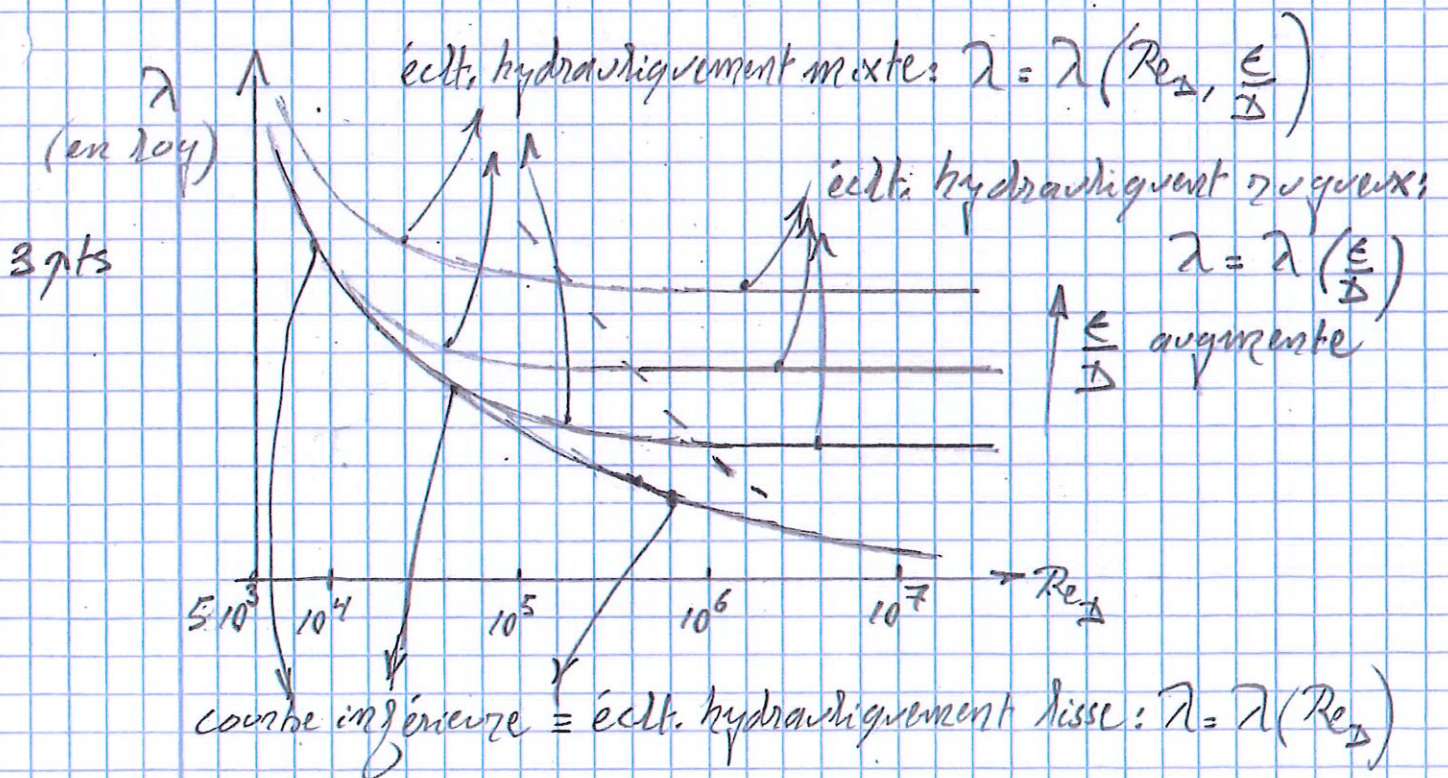 éclt. hydrauliquement mixte: λ = λ(Re_D, ε/D)
λ
(en log)
éclt. hydrauliquent rugueux:
λ = λ(ε/D)
3 pts
ε/D augmente
5 10³ 10⁴ 10⁵ 10⁶ 10⁷ Re_D
courbe inférieure ≡ éclt. hydrauliquement lisse: λ = λ(Re_D)